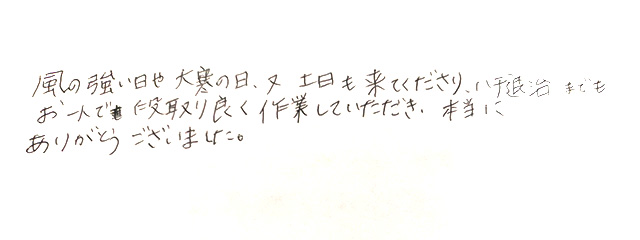 風の強い日や大寒の日、又土日も来てくださり、ハチ退治までも
お一人で段取り良く作業していただき、本当に
ありがとうございました。